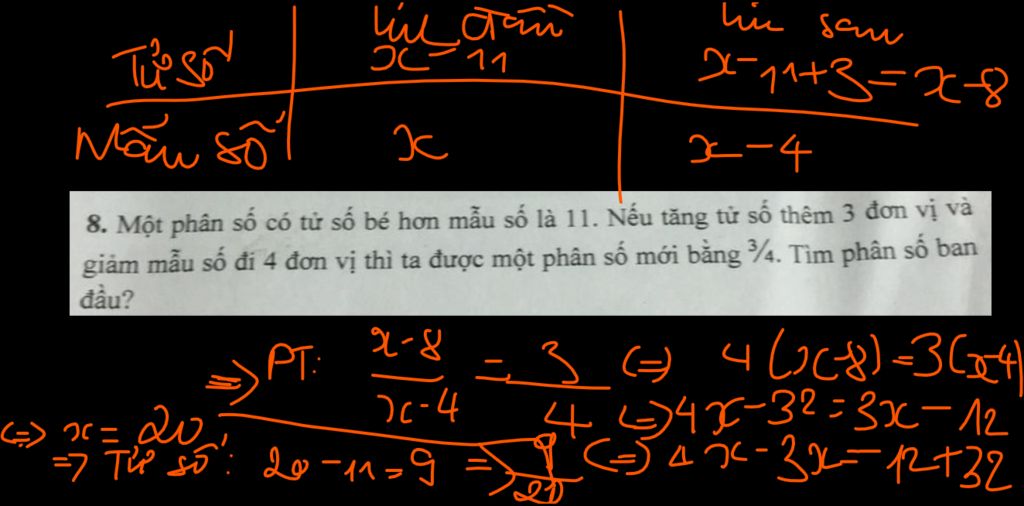 lúc đầu lúc sau
Tử số x-11 x-11+3=x-8
Mẫu số x x-4
8. Một phân số có tử số bé hơn mẫu số là 11. Nếu tăng tử số thêm 3 đơn vị và
giảm mẫu số đi 4 đơn vị thì ta được một phân số mới bằng ¾. Tìm phân số ban
đầu?
=> PT: x-8/x-4 = 3/4 <=> 4(x-8)=3(x-4)
<=> 4x-32=3x-12
<=> 4x-3x=-12+32
<=> x=20
=> Tử số: 20-11=9 => 9/20